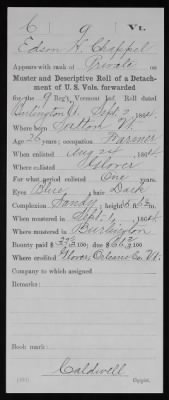 C 9 Vt.
Edson H. Chappel
Appears with rank of Private on
Muster and Descriptive Roll of a Detachment
of U. S. Vols. forwarded
for the 9 Reg't, Vermont Inf. Roll dated
Burlington Vt. Sept. 2, 1864.
Where born Vt.
Age 26 years; occupation Farmer
When enlisted Aug 1864.
Where enlisted Glover
For what period enlisted One years.
Eyes Blue; hair Dark
Complexion Sandy; height 5 ft. in.
When mustered in Sept. 1, 1864.
Where mustered in Burlington
Bounty paid $ 100; due $ 100
Where credited Glover, Orleans Co. Vt.
Company to which assigned
Remarks:
Book mark:
Caldwell
Copyist.